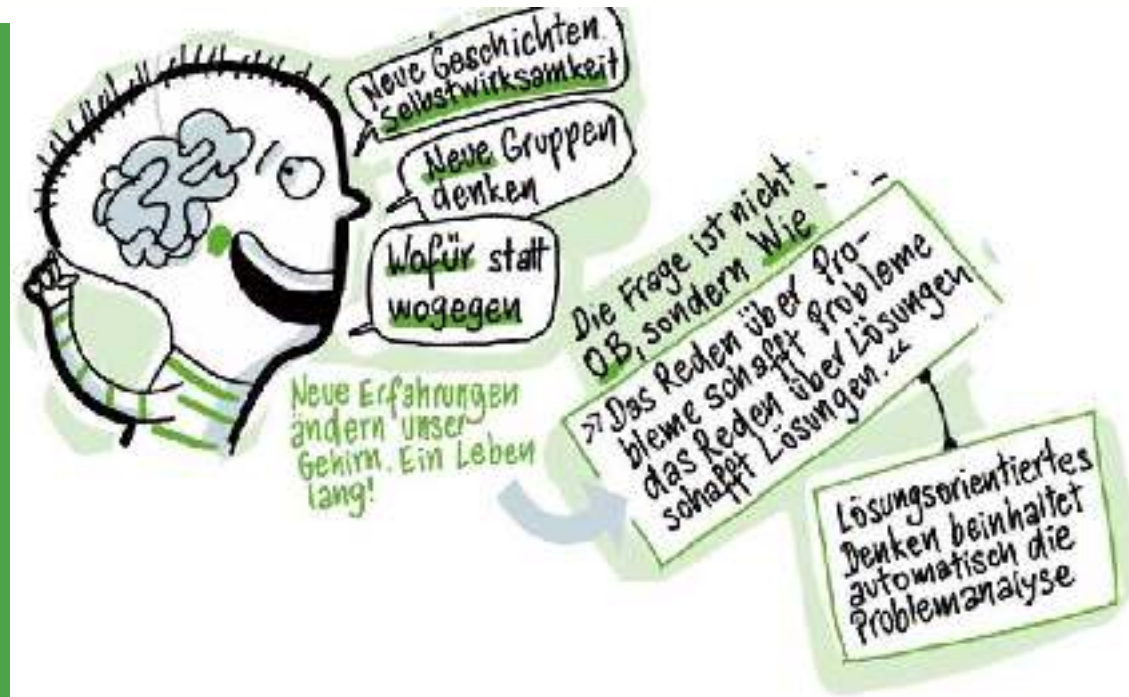 Neue Geschichten.
Selbstwirksamkeit
Neue Gruppen
denken
Wofür statt
wogegen
Neue Erfahrungen
ändern unser
Gehirn. Ein Leben
lang!
Die Frage ist nicht
OB, sondern Wie
»Das Reden über Pro-
bleme schafft Probleme
das Reden über Lösungen
schafft Lösungen.«
Lösungsorientiertes
Denken beinhaltet
automatisch die
Problemanalyse